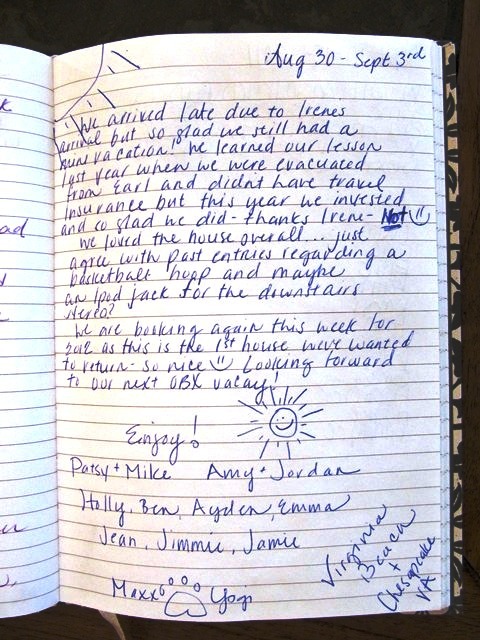 Aug 30 - Sept 3rd
We arrived late due to Irenes
arrival but so glad we still had a
mini vacation! We learned our lesson
last year when we were evacuated
from Earl and didn't have travel
insurance but this year we invested
and so glad we did - thanks Irene - Not
We loved the house overall... just
agree with past entries regarding a
basketball hoop and maybe
an Ipod jack for the downstairs
stereo?
We are booking again this week for
2012 as this is the 1st house weve wanted
to return - so nice Looking forward
to our next OBX vacay!
Enjoy!
Patsy + Mike Amy + Jordan
Holly, Ben, Ayden, Emma
Jean, Jimmie, Jamie
Maxx Yogi
Virginia
Beach
+
Chesapeake
VA